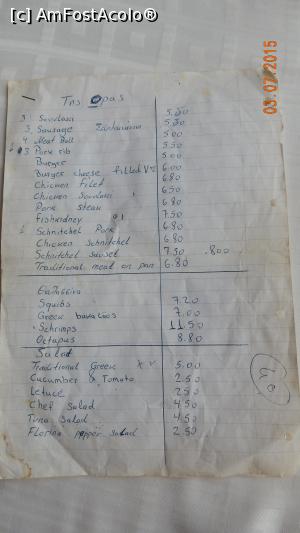 [c] AmFostAcolo®
03.07.2015
Της Ωρας
3 Souvlaki 5.50
3 Sausage 5.50
4 Meat Ball 5.00
3 Pork rib 5.50
Burger 5.00
Burger cheese filled 6.00
Chicken filet 6.80
Chicken Souvlaki 6.50
Pork steak 6.80
7.50
Schnitchel Pork 6.80
Chicken Schnitchel 6.80
Schnitchel 7.50 .800
Traditional meat on pan 6.80
Squibs 7.20
Greek 7.00
Schrimps 11.50
Octapus 8.80
Salad
Traditional Greek 5.00
Cucumber & Tomato 2.50
Letuce 2.50
Chef Salad 4.50
Tuna Salad 4.50
Florina pepper salad 2.50